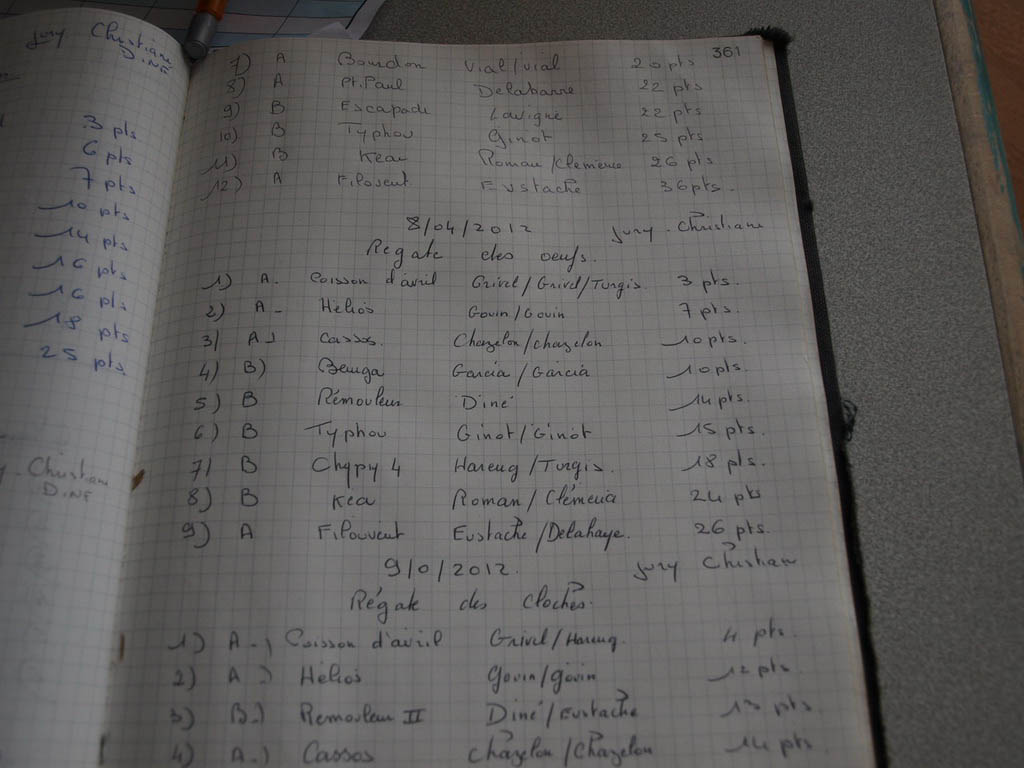 Jury Christiane
DINÉ
3 pts
6 pts
7 pts
10 pts
14 pts
16 pts
16 pts
18 pts
25 pts
Christiane
DINÉ
361
7) A Bourdon Vial/vial 20 pts
8) A Pt. Paul Delabarre 22 pts
9) B Escapade Lavigne 22 pts
10) B Typhou Ginot 25 pts
11) B Kea Roman/Clemencia 26 pts
12) A Filouvent Eustache 36 pts.
8/04/2012 Jury - Christiane
Régate des oeufs.
1) A- Coisson d'avril Grivel/Grivel/Turgis. 3 pts.
2) A- Hélios Gouin/Gouin 7 pts.
3) A) Cassos. Chazelon/chazelon 10 pts.
4) B) Garcia/Garcia 10 pts.
5) B Rémouleur Diné 14 pts.
6) B Typhou Ginot/Ginot 15 pts.
7) B Chypy 4 Hareng/Turgis. 18 pts.
8) B Kea Roman/Clémencia 24 pts
9) A Filouvent Eustache/Delahaye. 26 pts.
9/0/2012. Jury Christiane
Régate des cloches.
1) A-) Coisson d'avril Grivel/Hareng. 4 pts.
2) A-) Hélios Gouin/gouin 12 pts.
3) B-) Remouleur II Diné/Eustache 13 pts.
4) A-) Cassos Chazelon/Chazelon 14 pts